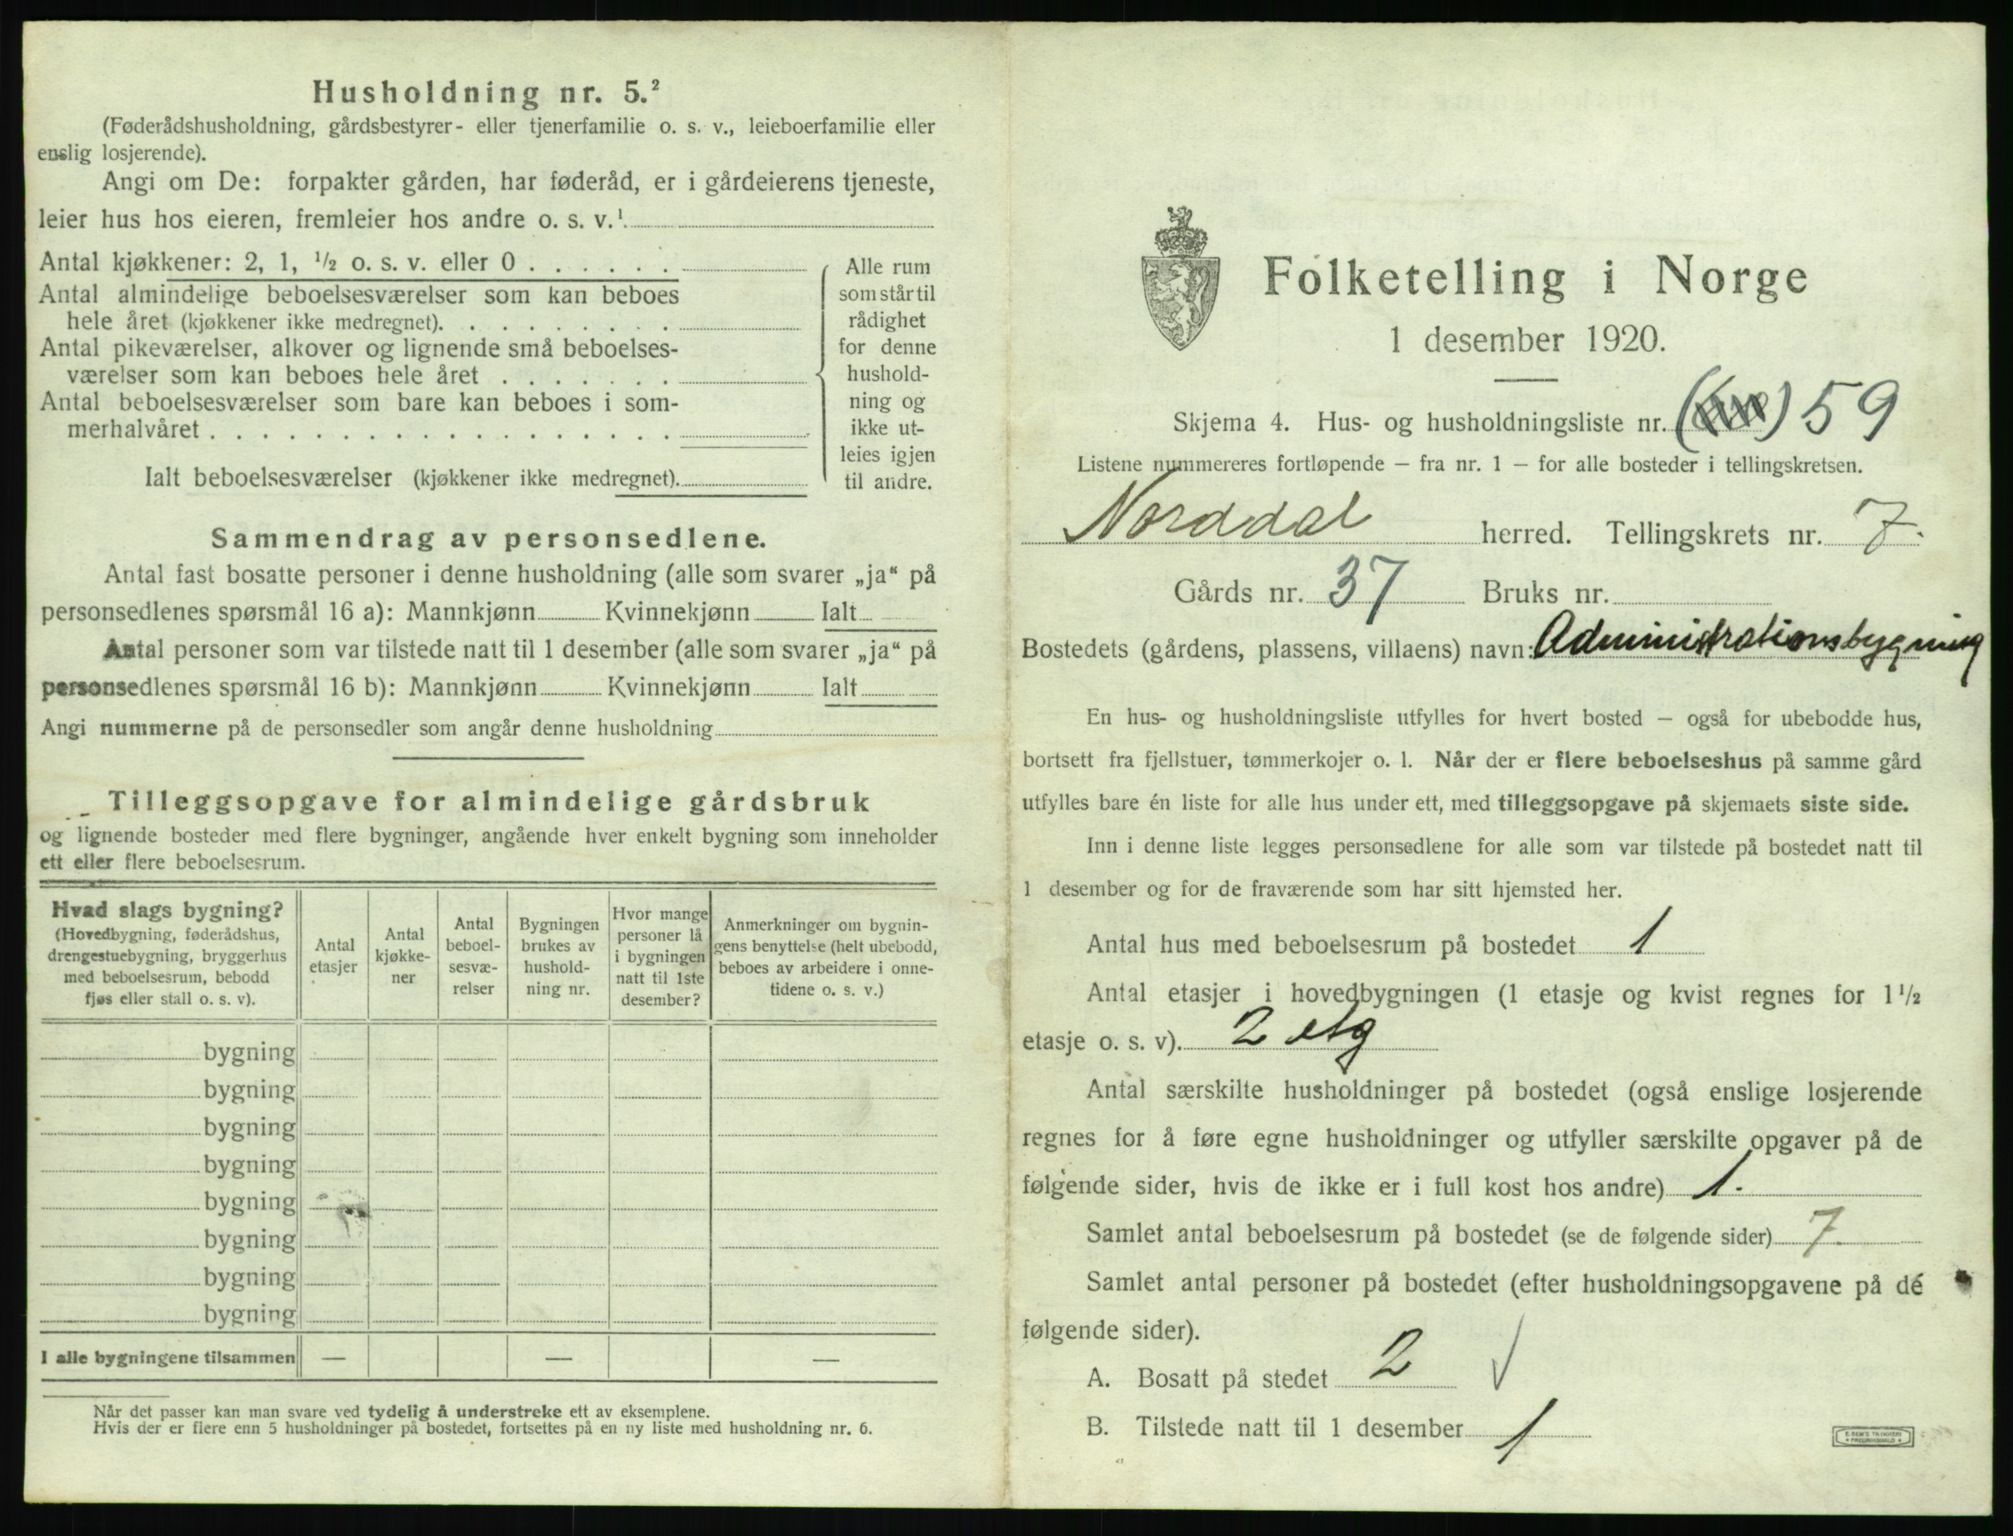 Husholdning nr. 5.²
(Føderådshusholdning, gårdsbestyrer- eller tjenerfamilie o. s. v., leieboerfamilie eller
enslig losjerende).
Angi om De: forpakter gården, har føderåd, er i gårdeierens tjeneste,
leier hus hos eieren, fremleier hos andre o. s. v.¹
Antal kjøkkener: 2, 1, ½ o. s. v. eller 0 . . . . . .
Antal almindelige beboelsesværelser som kan beboes
hele året (kjøkkener ikke medregnet). . . . . . . . .
Antal pikeværelser, alkover og lignende små beboelses-
værelser som kan beboes hele året . . . . . . .
Antal beboelsesværelser som bare kan beboes i som-
merhalvåret . . . . . . . . . . . . . . . . . .
Ialt beboelsesværelser (kjøkkener ikke medregnet).
Alle rum
som står til
rådighet
for denne
hushold-
ning og
ikke ut-
leies igjen
til andre.
Sammendrag av personsedlene.
Antal fast bosatte personer i denne husholdning (alle som svarer „ja“ på
personsedlenes spørsmål 16 a): Mannkjønn Kvinnekjønn Ialt
Antal personer som var tilstede natt til 1 desember (alle som svarer „ja“ på
personsedlenes spørsmål 16 b): Mannkjønn Kvinnekjønn Ialt
Angi nummerne på de personsedler som angår denne husholdning
Tilleggsopgave for almindelige gårdsbruk
og lignende bosteder med flere bygninger, angående hver enkelt bygning som inneholder
ett eller flere beboelsesrum.
Hvad slags bygning?
(Hovedbygning, føderådshus,
drengestuebygning, bryggerhus
med beboelsesrum, bebodd
fjøs eller stall o. s. v).
Antal
etasjer
Antal
kjøkke-
ner
Antal
beboel-
sesvæ-
relser
Bygningen
brukes av
hushold-
ning nr.
Hvor mange
personer lå
i bygningen
natt til 1ste
desember?
Anmerkninger om bygnin-
gens benyttelse (helt ubebodd,
beboes av arbeidere i onne-
tidene o. s. v.)
bygning
bygning
bygning
bygning
bygning
bygning
bygning
bygning
I alle bygningene tilsammen — — —
Når det passer kan man svare ved tydelig å understreke ett av eksemplene.
Hvis der er flere enn 5 husholdninger på bostedet, fortsettes på en ny liste med husholdning nr. 6.
Folketelling i Norge
1 desember 1920.
Skjema 4. Hus- og husholdningsliste nr. ( ) 59
Listene nummereres fortløpende — fra nr. 1 — for alle bosteder i tellingskretsen.
Norddal herred. Tellingskrets nr. 7.
Gårds nr. 37 Bruks nr.
Bostedets (gårdens, plassens, villaens) navn: Administrationsbygning
En hus- og husholdningsliste utfylles for hvert bosted — også for ubebodde hus,
bortsett fra fjellstuer, tømmerkojer o. l. Når der er flere beboelseshus på samme gård
utfylles bare én liste for alle hus under ett, med tilleggsopgave på skjemaets siste side.
Inn i denne liste legges personsedlene for alle som var tilstede på bostedet natt til
1 desember og for de fraværende som har sitt hjemsted her.
Antal hus med beboelsesrum på bostedet 1
Antal etasjer i hovedbygningen (1 etasje og kvist regnes for 1½
etasje o. s. v). 2 etg
Antal særskilte husholdninger på bostedet (også enslige losjerende
regnes for å føre egne husholdninger og utfyller særskilte opgaver på de
følgende sider, hvis de ikke er i full kost hos andre) 1.
Samlet antal beboelsesrum på bostedet (se de følgende sider) 7.
Samlet antal personer på bostedet (efter husholdningsopgavene på de
følgende sider).
A. Bosatt på stedet 2 √
B. Tilstede natt til 1 desember 1